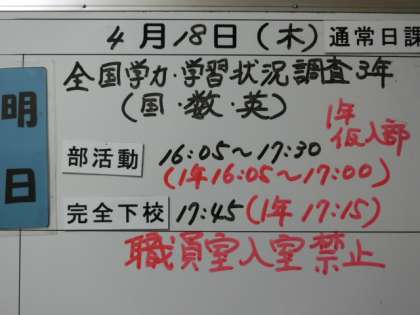 4月18日(木) 通常日課
明日
全国学力・学習状況調査3年
(国・数・英)
1年
仮入部
部活動 16:05～17:30
(1年16:05～17:00)
完全下校 17:45(1年17:15)
職員室入室禁止